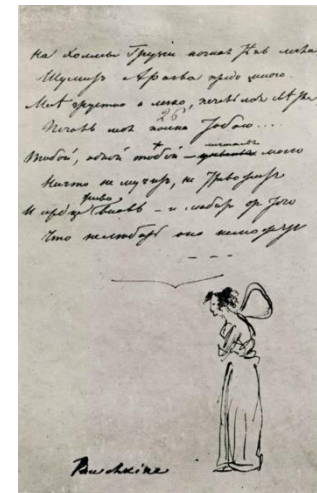 На Холмы Грузіи ночная Тѣнь легла
Шумитъ Арагва предо мною.
Мнѣ грустно и легко, печаль моя свѣтла
26
Печаль моя полна Тобою....
Тобой, одной тобой — моего
Ничто не мучитъ, не Тревожитъ
И сердце вновь — и любитъ отъ Того
Что не любить оно не можетъ
Pouchkine